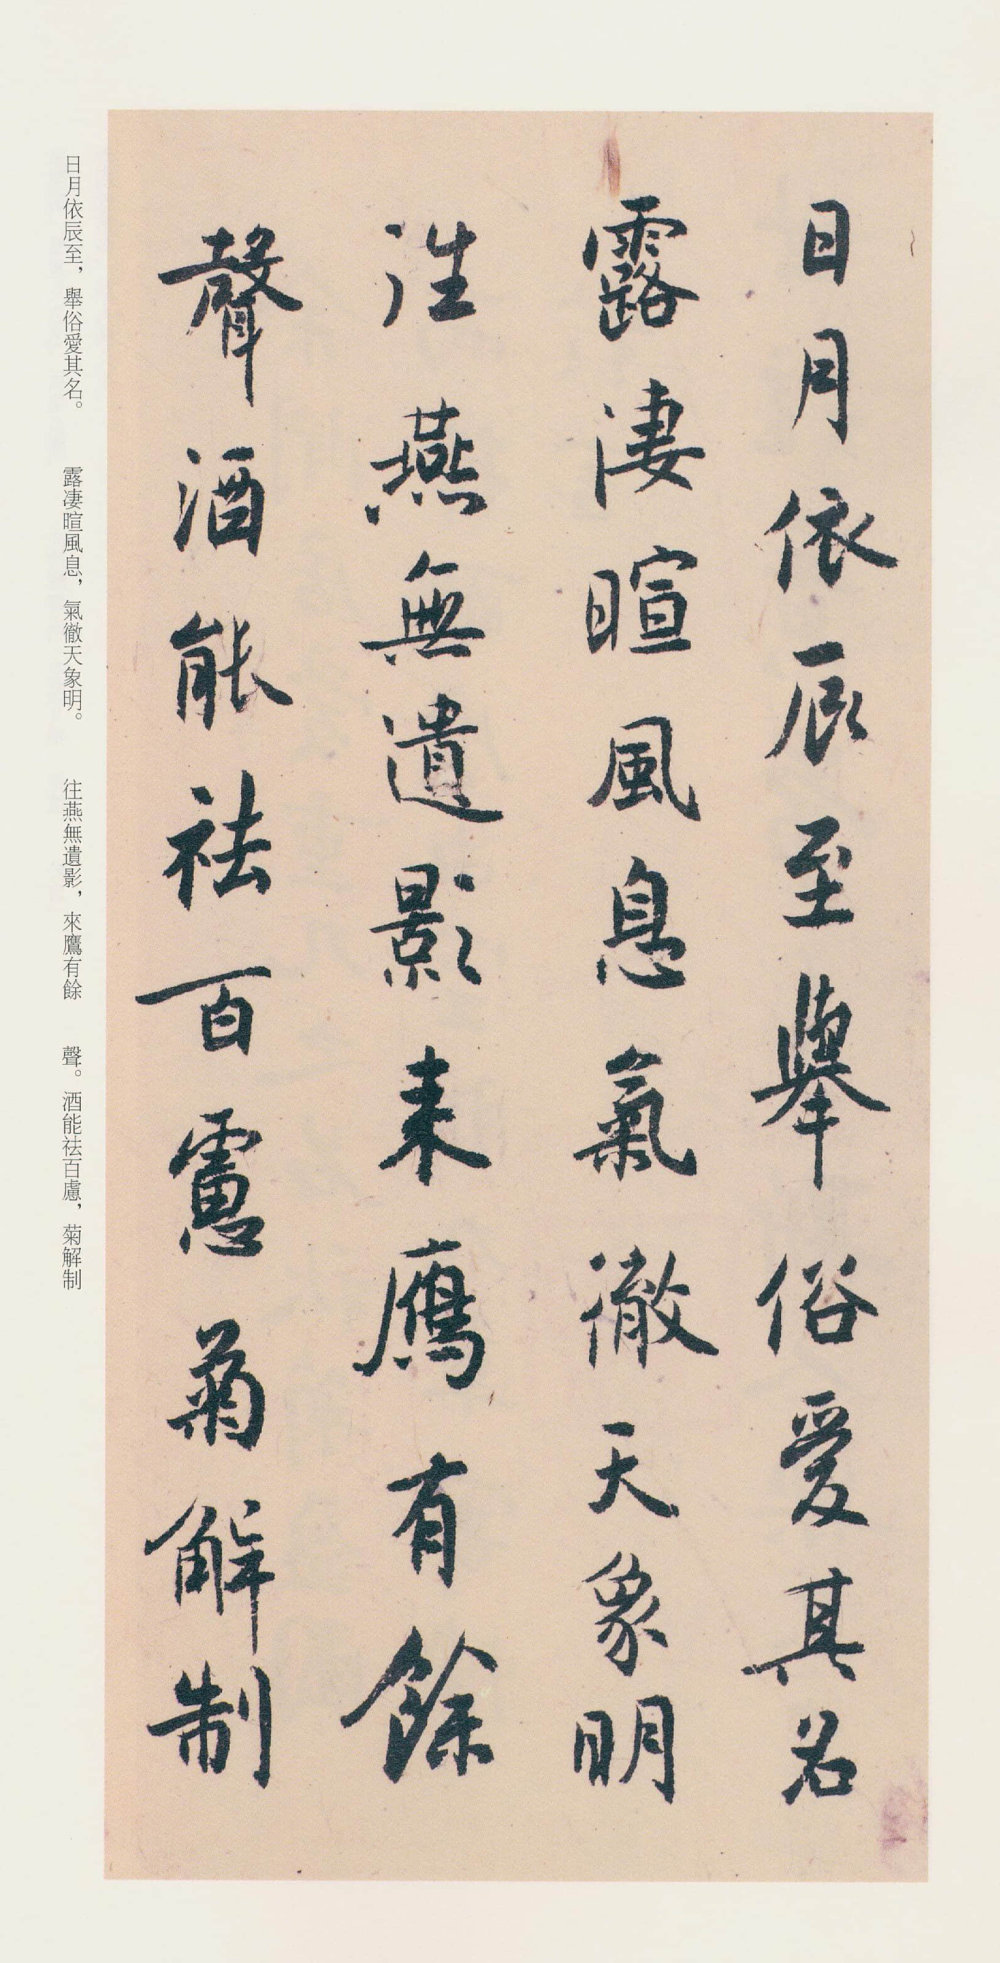 日月依辰至舉俗愛其名
露凄暄風息氣徹天象明
往燕無遺影来鴈有餘
聲酒能祛百慮菊解制
日月依辰至，舉俗愛其名。 露凄暄風息，氣徹天象明。 往燕無遺影，來鷹有餘 聲。酒能祛百慮，菊解制